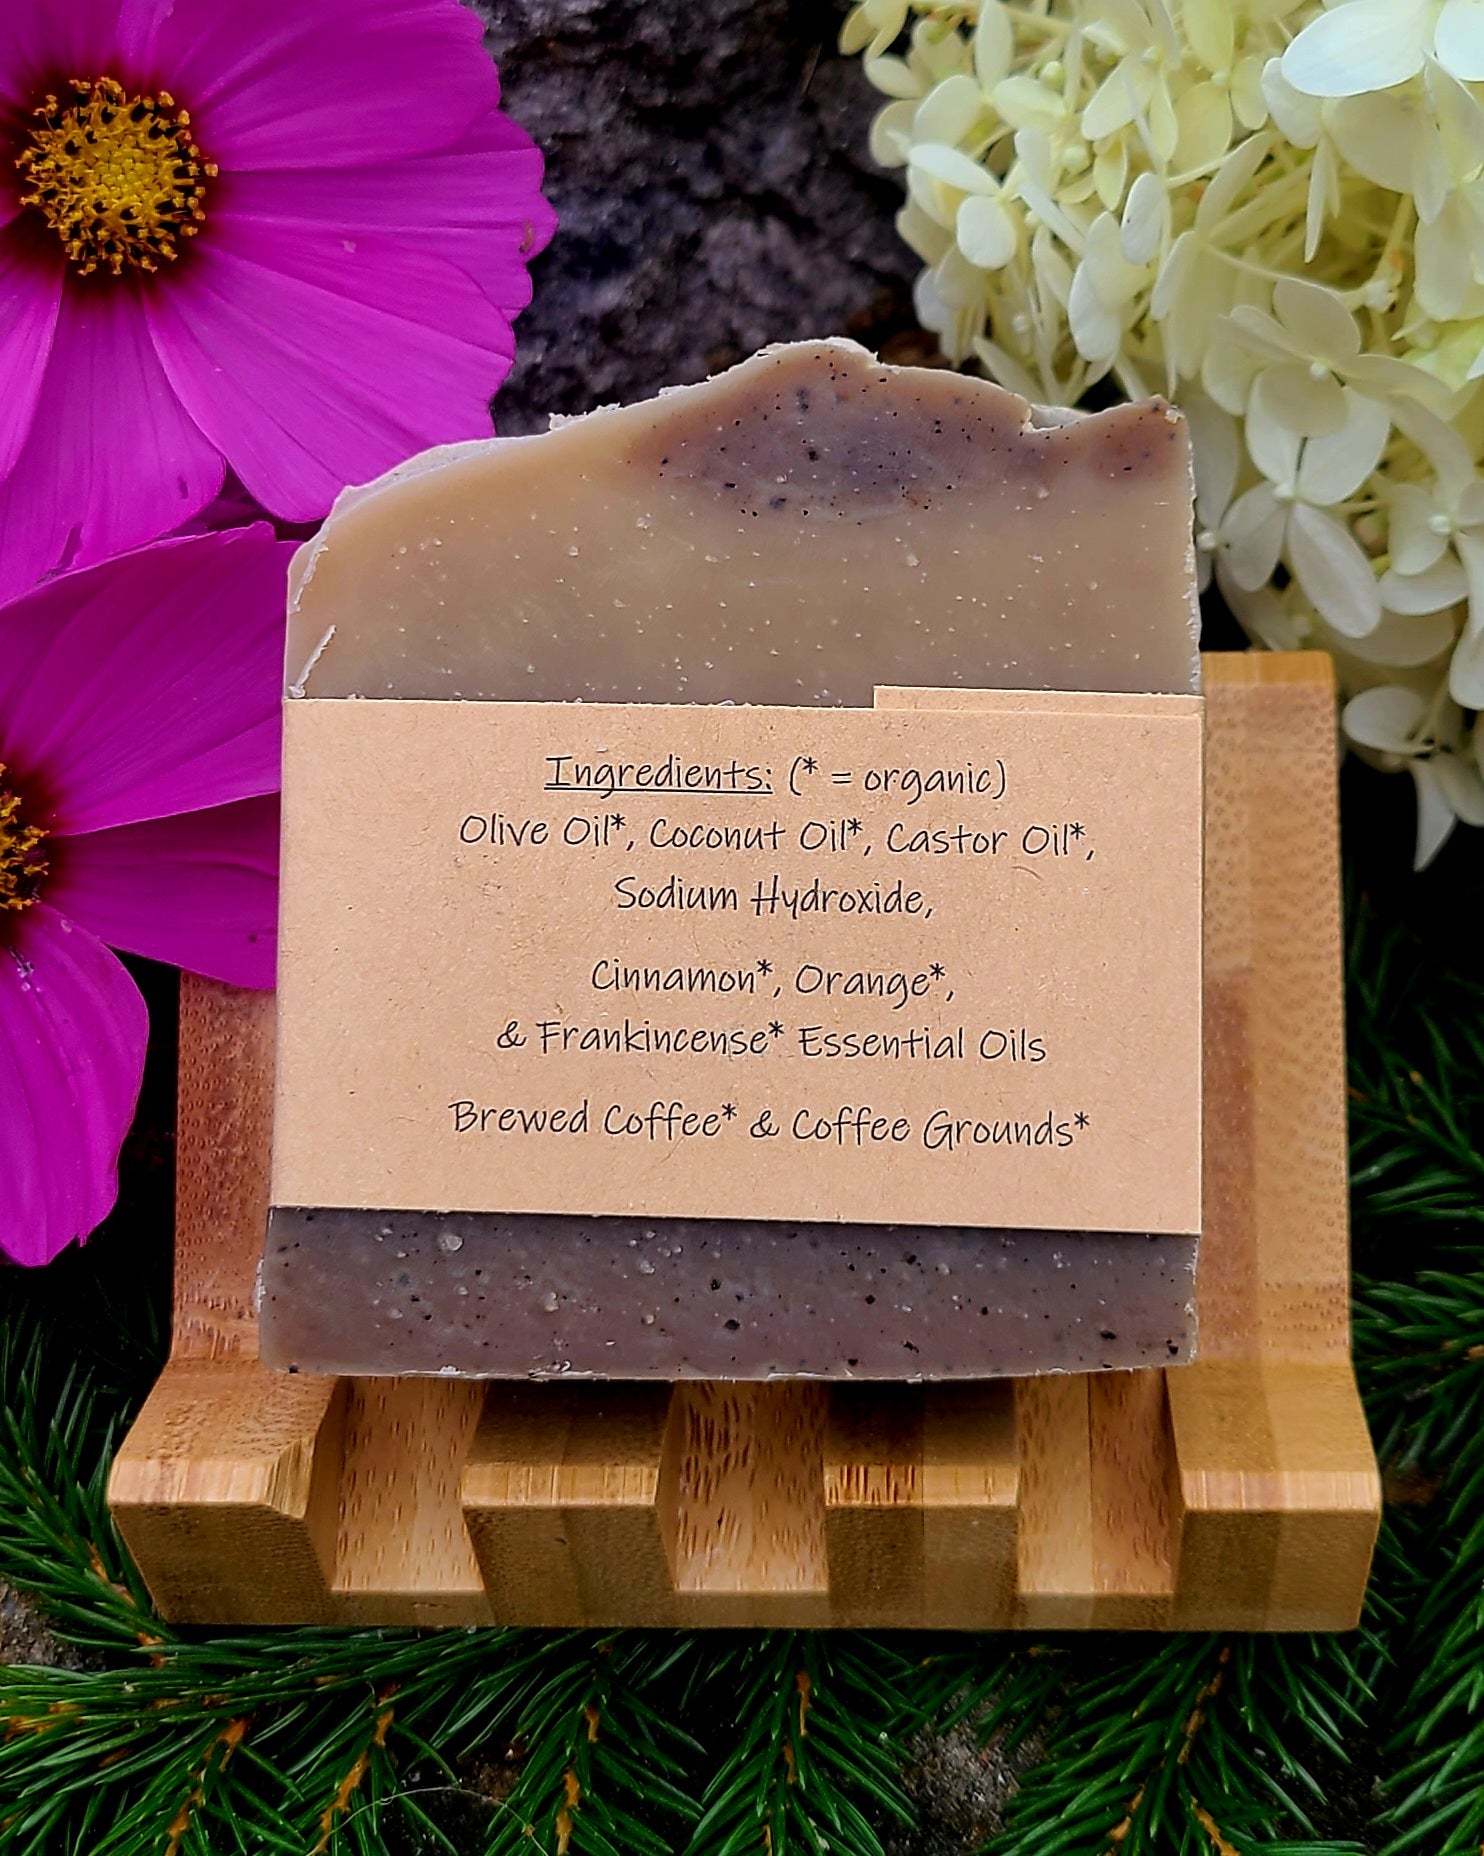 Ingredients: (* = organic)
Olive Oil*, Coconut Oil*, Castor Oil*,
Sodium Hydroxide,
Cinnamon*, Orange*,
& Frankincense* Essential Oils
Brewed Coffee* & Coffee Grounds*